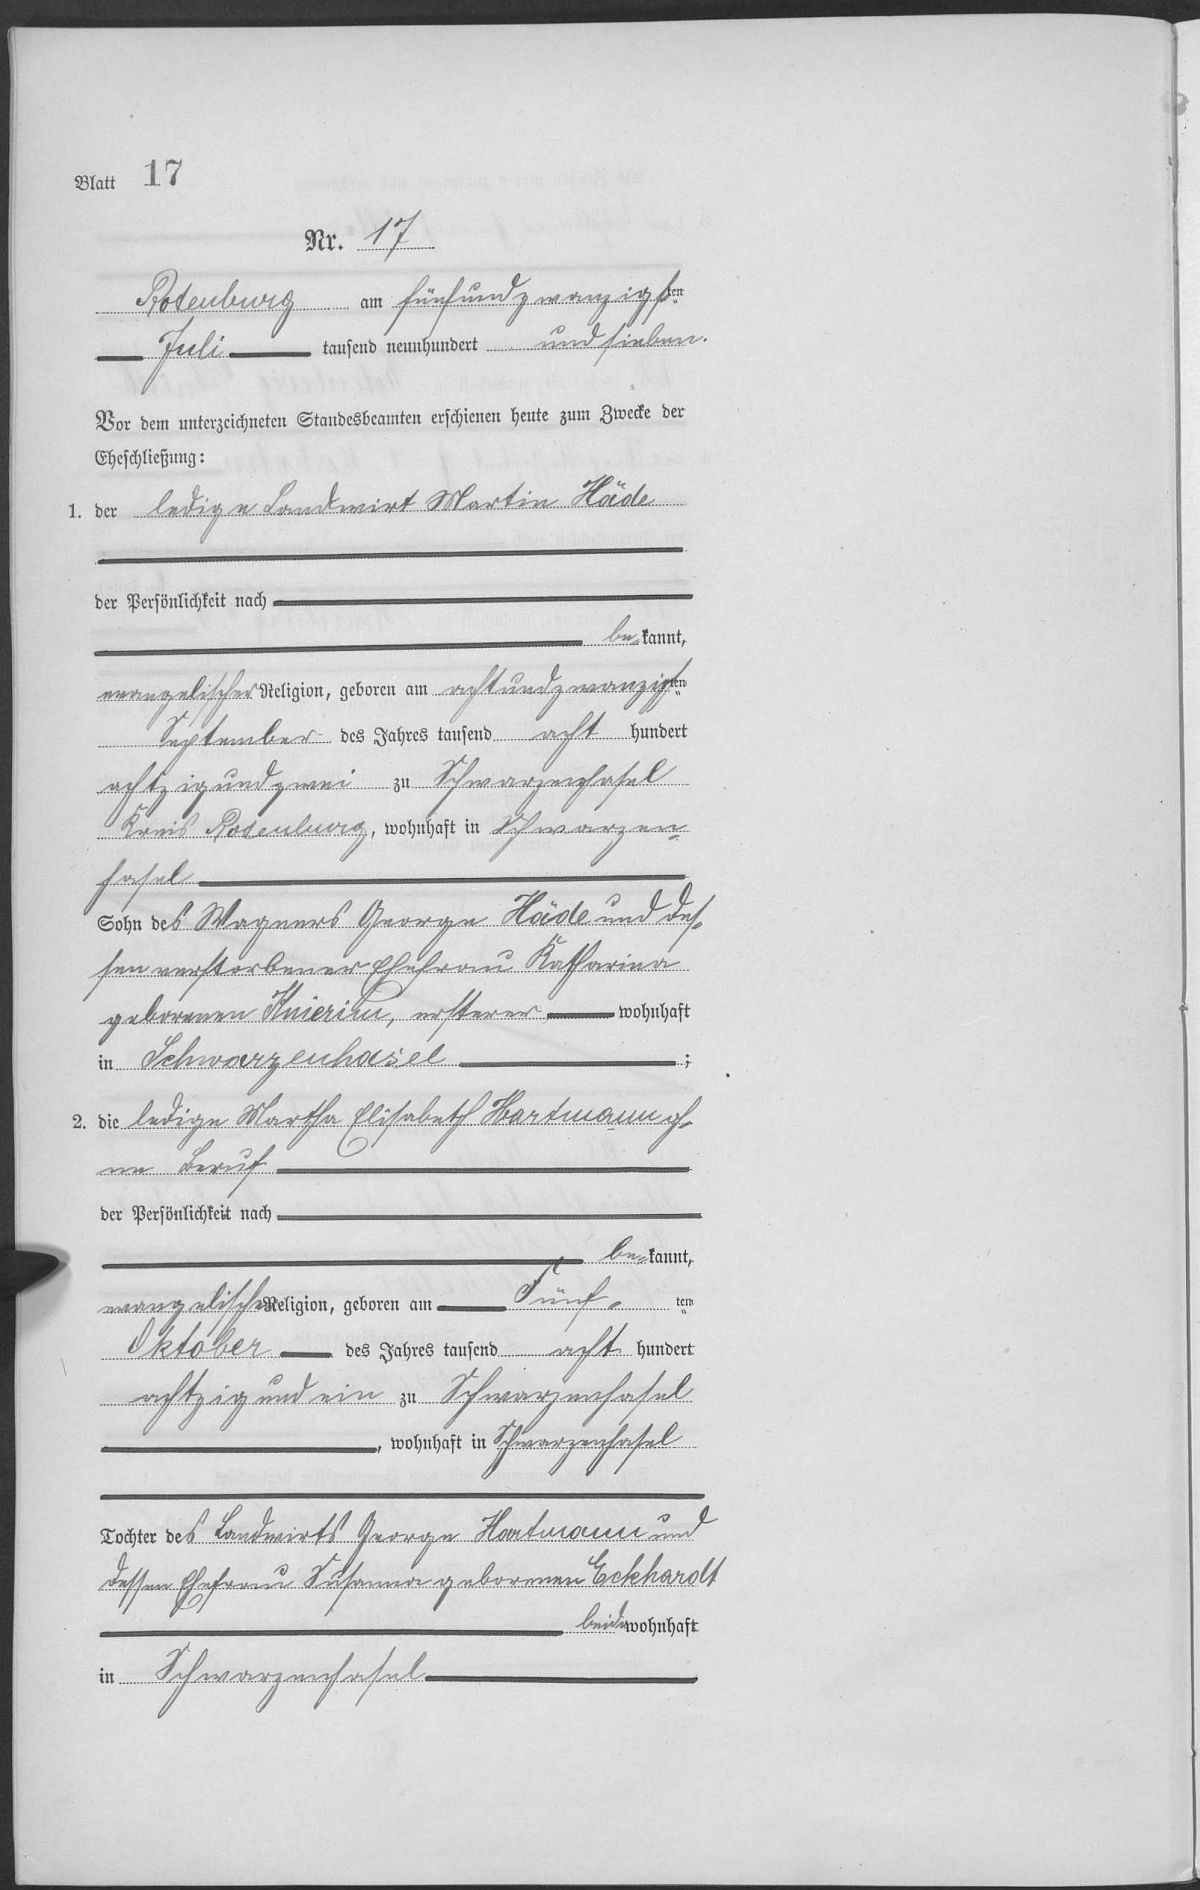 Blatt 17
Nr. 17
Rotenburg am fünfundzwanzigsten
Juli tausend neunhundert und sieben.
Vor dem unterzeichneten Standesbeamten erschienen heute zum Zwecke der
Eheschließung:
1. der ledige Landwirt Martin Häde
der Persönlichkeit nach
be=kannt,
evangelischer Religion, geboren am achtundzwanzigsten
September des Jahres tausend acht hundert
achtzigundzwei zu Schwarzenhasel
Kreis Rotenburg, wohnhaft in Schwarzen=
hasel
Sohn des Wagners George Häde und des=
sen verstorbener Ehefrau Katharina
geborenen Knierim, ersterer wohnhaft
in Schwarzenhasel ;
2. die ledige Martha Elisabeth Hartmann oh=
ne Beruf
der Persönlichkeit nach
be=kannt,
evangelischer Religion, geboren am Fünf=ten
Oktober des Jahres tausend acht hundert
achtzigundein zu Schwarzenhasel
, wohnhaft in Schwarzenhasel
Tochter des Landwirts George Hartmann und
dessen Ehefrau Susanna geborenen Eckhardt
beide wohnhaft
in Schwarzenhasel